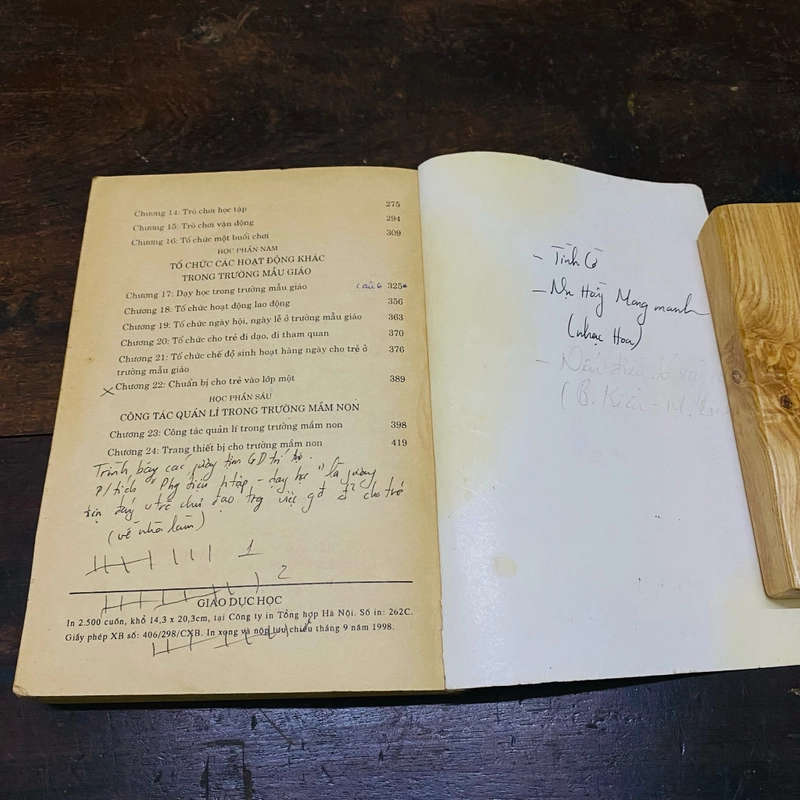 Chương 14: Trò chơi học tập 275
Chương 15: Trò chơi vận động 294
Chương 16: Tổ chức một buổi chơi 309
HỌC PHẦN NĂM
TỔ CHỨC CÁC HOẠT ĐỘNG KHÁC
TRONG TRƯỜNG MẪU GIÁO
Chương 17: Dạy học trong trường mẫu giáo (câu 6 325
Chương 18: Tổ chức hoạt động lao động 356
Chương 19: Tổ chức ngày hội, ngày lễ ở trường mẫu giáo 363
Chương 20: Tổ chức cho trẻ đi dạo, đi tham quan 370
Chương 21: Tổ chức chế độ sinh hoạt hàng ngày cho trẻ ở 376
trường mẫu giáo
Chương 22: Chuẩn bị cho trẻ vào lớp một 389
HỌC PHẦN SÁU
CÔNG TÁC QUẢN LÍ TRONG TRƯỜNG MẦM NON
Chương 23: Công tác quản lí trong trường mầm non 398
Chương 24: Trang thiết bị cho trường mầm non 419
Trình bày các phương tiện GD trí tuệ.
P/tích "Phg tiện h tập - dạy học" là phương
tiện chủ đạo trg việc gd cho trẻ
(về nhà làm)
1
2
GIÁO DỤC HỌC
In 2.500 cuốn, khổ 14,3 x 20,3cm, tại Công ty in Tổng hợp Hà Nội. Số in: 262C.
Giấy phép XB số: 406/298/CXB. In xong và nộp lưu chiểu tháng 9 năm 1998.
- Tình Cờ
- Mong manh
(nhạc Hoa)
(B. Kiều - M.